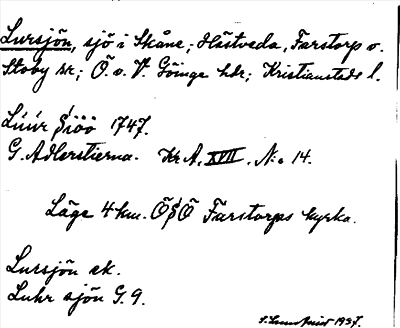 Lursjön, sjö i Skåne; Hästveda, Farstorp o.
Stoby snr; Ö. o. V. Göinge hdr; Kristianstads l.
Lúúr Siöö 1747.
G. Adlerstierna. Kr A. XVII. No 14.
Läge 4 km. ÖSÖ Farstorps kyrka.
Lursjön ek.
Luhr sjön G. 9.
1937.